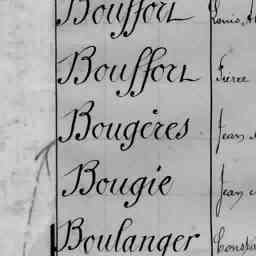 Bouffort Louis
Bouffort Pierre
Bougères Jean
Bougie Jean
Boulanger